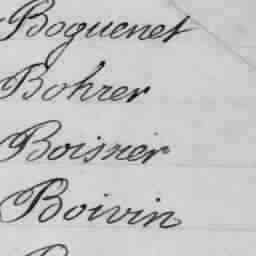 Boguenet
Bohrer
Boisnier
Boivin